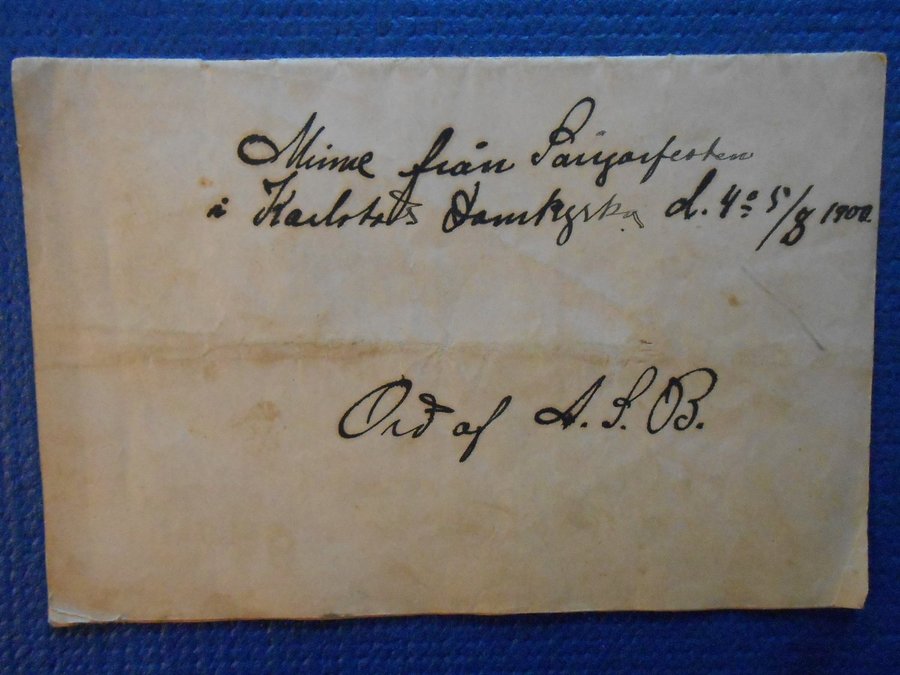 Minne från Sångarfesten
i Karlstads Domkyrka d. 4 o 5/8 1900.
Ord af A. S. B.